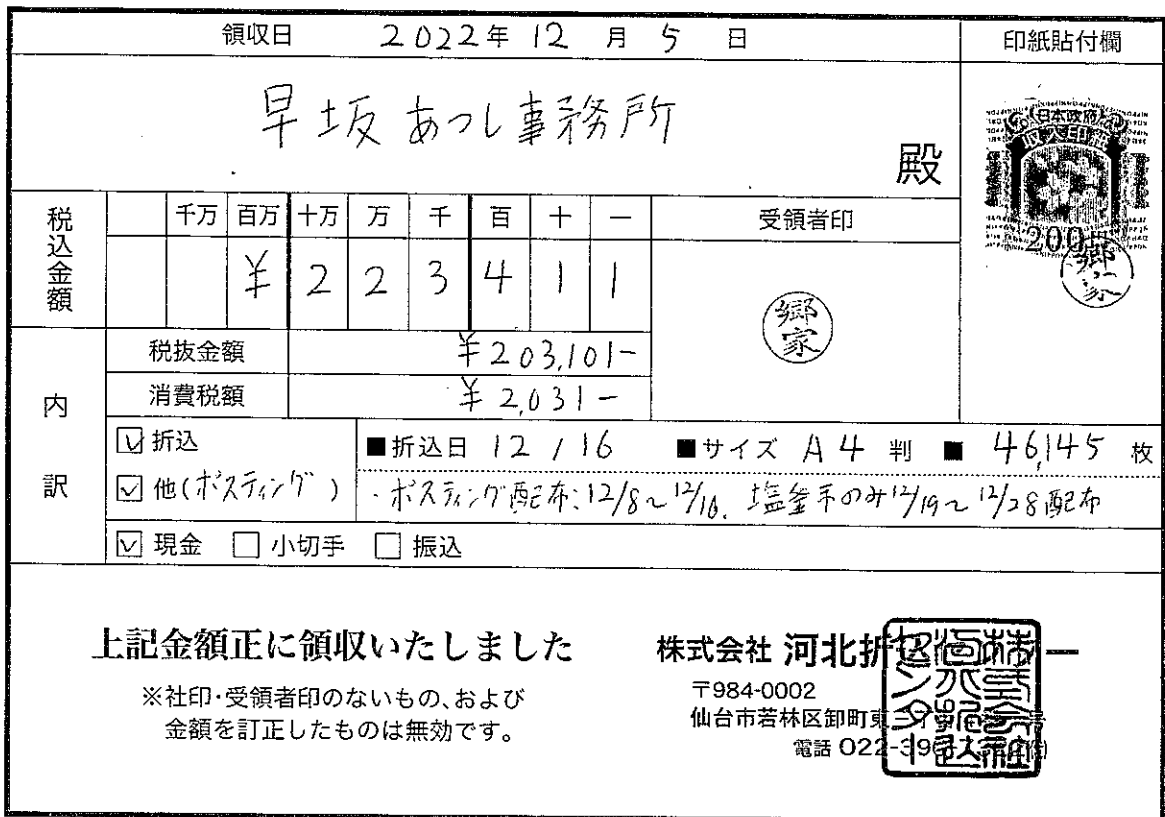 領収日 2022年 12 月 5 日
印紙貼付欄
早坂あつし事務所
殿
日本政府
収入印紙
200円
郷家
税込金額
千万 百万 十万 万 千 百 十 一
受領者印
¥ 2 2 3 4 1 1
郷家
税抜金額 ¥203,101-
消費税額 ¥2,031-
内訳
☑折込 ■折込日 12 / 16 ■サイズ A4 判 ■ 46,145 枚
☑他(ポスティング) ・ポスティング配布:12/8~12/16、塩釜市のみ12/19~12/28配布
☑現金 □小切手 □振込
上記金額正に領収いたしました
※社印・受領者印のないもの、および
金額を訂正したものは無効です。
株式会社 河北折込センター
〒984-0002
仙台市若林区卸町東
電話 022-390-
株式会社河北折込センター